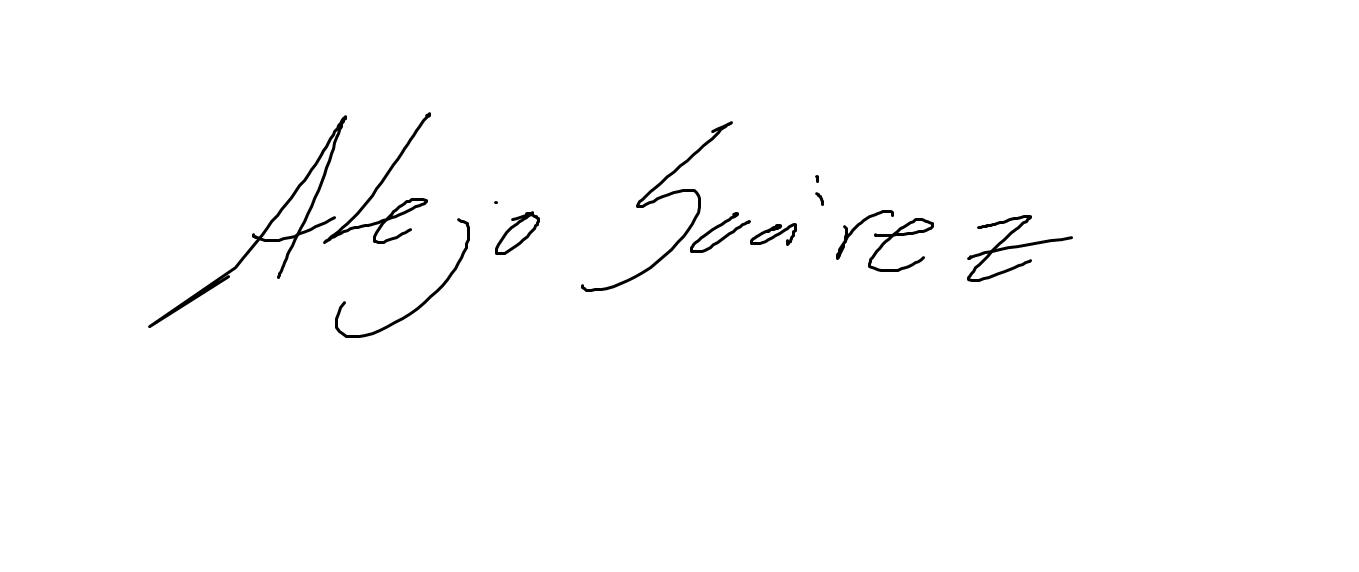 Alejo Suárez